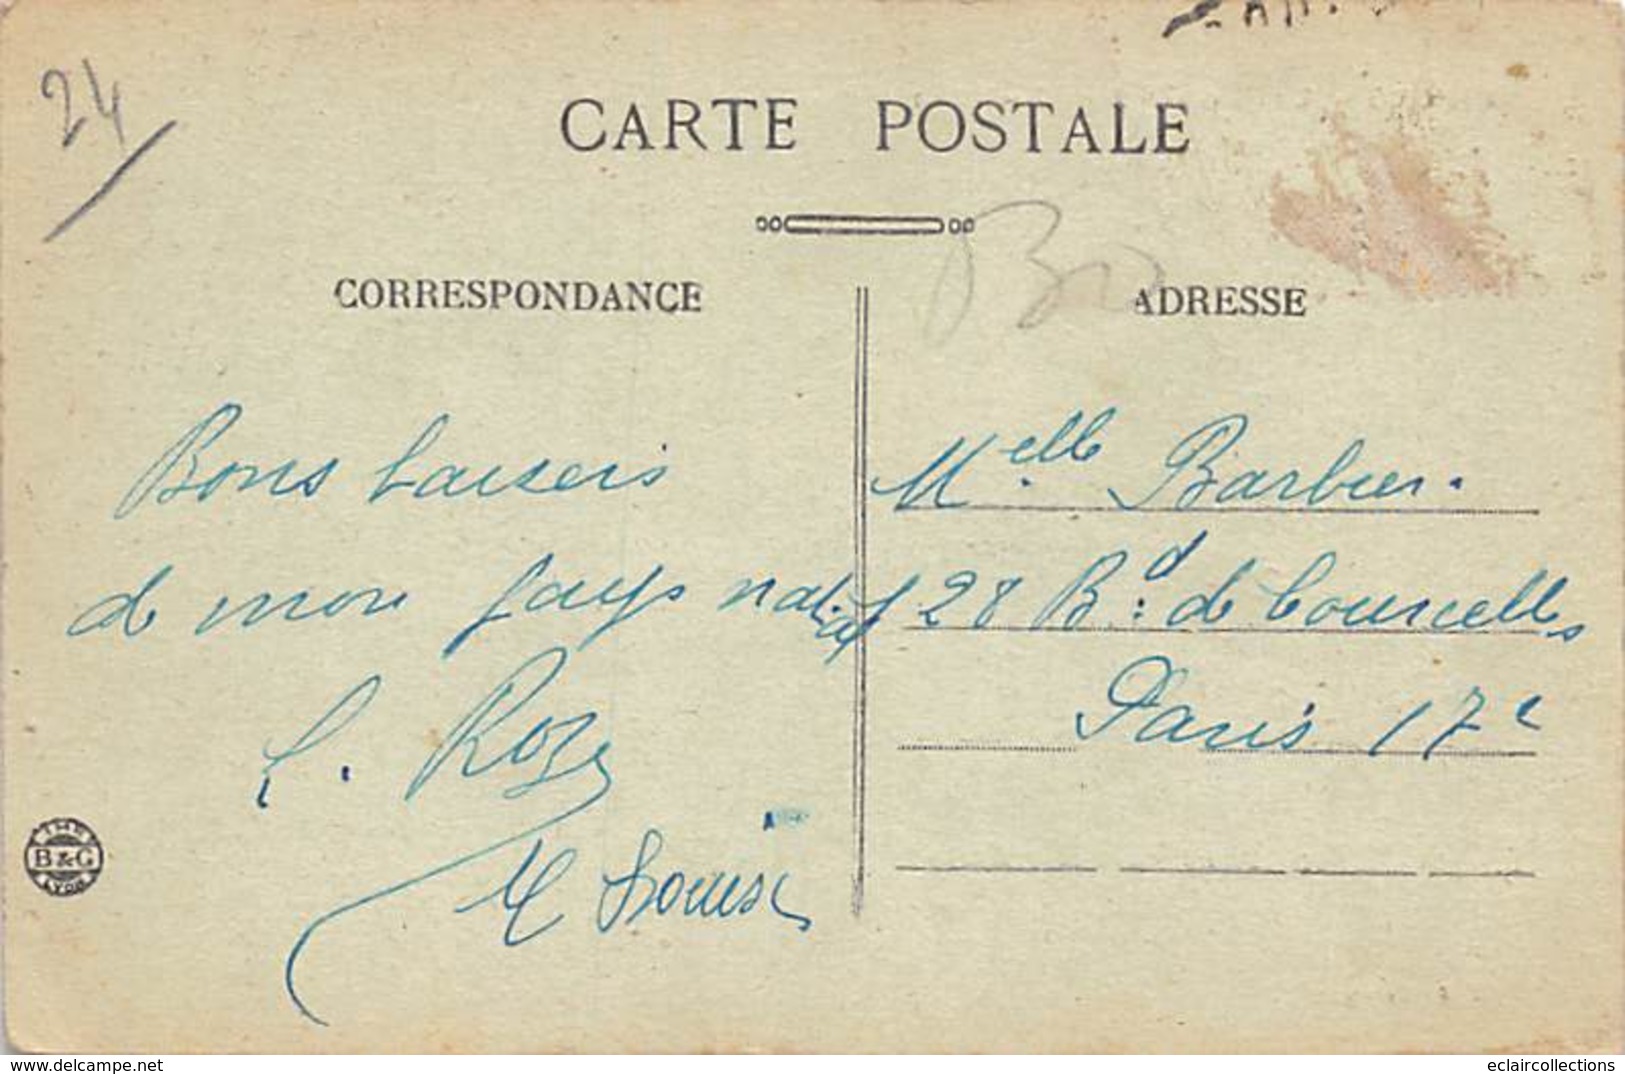 24
CARTE POSTALE
CORRESPONDANCE
ADRESSE
Bons baisers
de mon pays natal
L. Roze
Louise
Melle Barbier.
28 Bd de Courcelles
Paris 17e
B & G
LYON
www.delcampe.net
eclaircollections